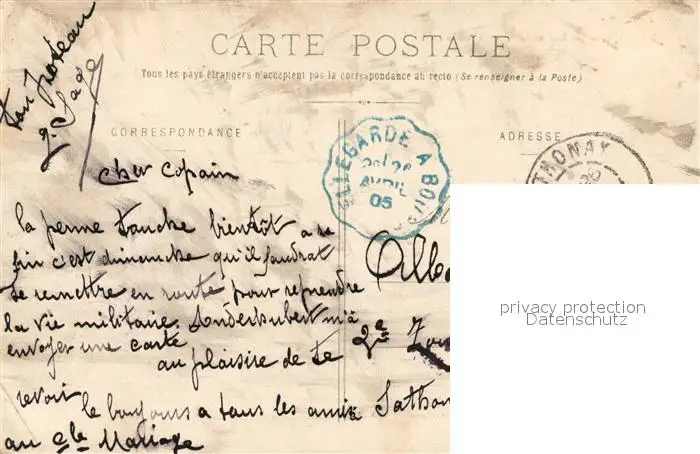 ton Poteau
J. Sage
CARTE POSTALE
Tous les pays étrangers n'acceptent pas la correspondance au recto (Se renseigner à la Poste)
CORRESPONDANCE
ADRESSE
BELLEGARDE A BOURG
AVRIL
05
THONAY
cher copain
la perme touche bientôt a sa
fin c'est dimenche qu'il faudrat
se remettre en route pour reprendre
la vie militaire. m'a
envoyer une carte
au plaisire de te
revoir
le bonjours a tous les amis
au Mariage
Albe
2e Zou
Sathon
privacy protection
Datenschutz